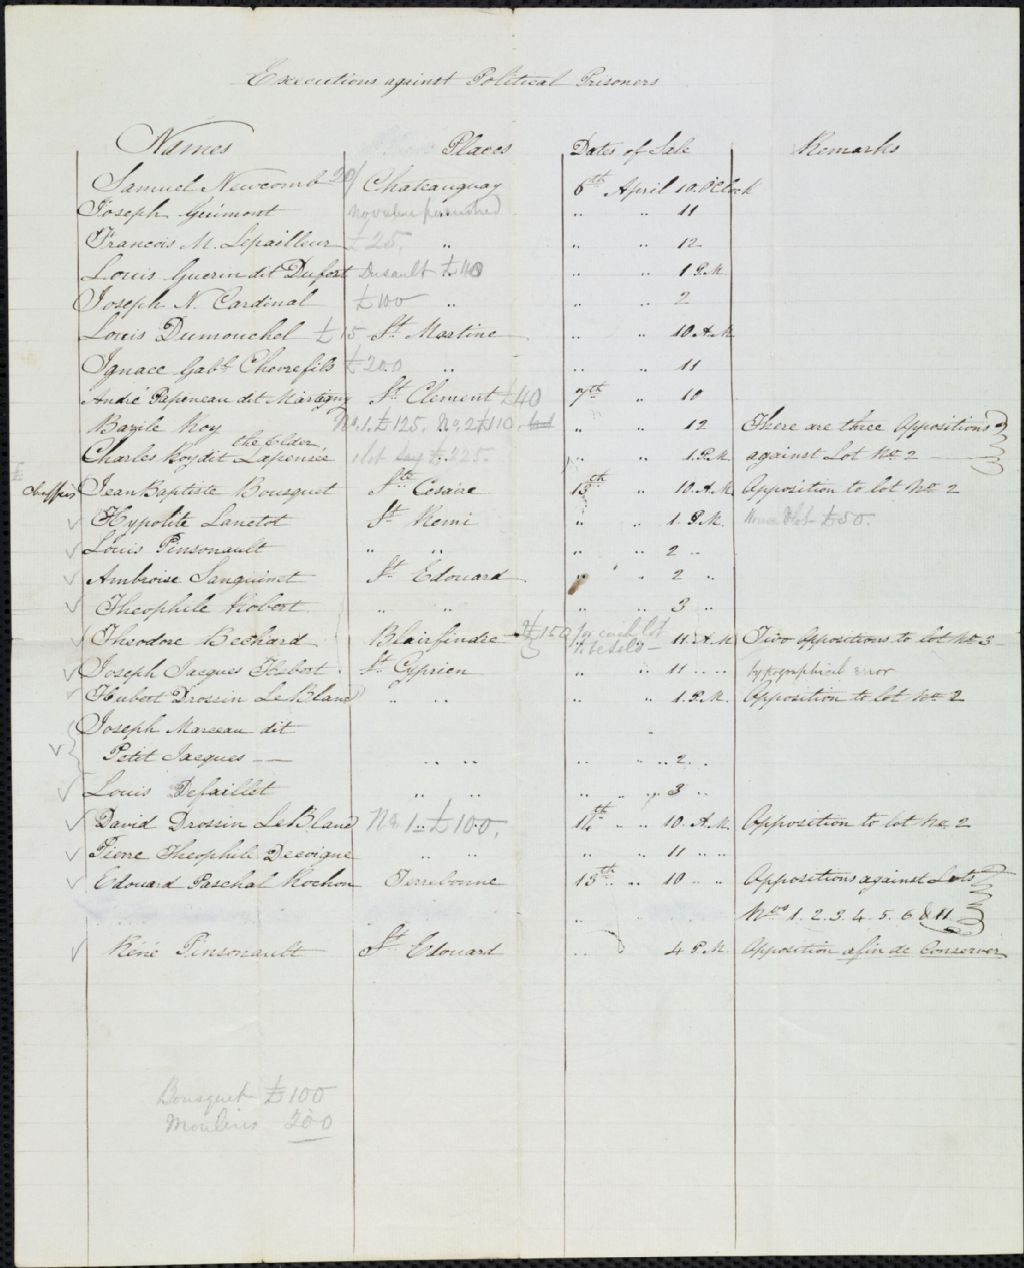 Executions against Political Prisoners
Names Places Dates of Sale Remarks
Samuel Newcomb 20/ Chateauguay 6th April 10 O'Clock
Joseph Guimont no value furnished " " 11
Francois M. Lepailleur £25. " " " 12
Louis Guerin dit Dufort Dusault £40 " " 1 P.M.
Joseph N. Cardinal £100 " " " 2
Louis Dumouchel £15 St. Martine " " 10 A.M
Ignace Gabl. Chevrefils £200 " " " 11
André Papeneau dit Martigny St. Clement £40 7th " 10
Bazile Roy No. 1. £125. No. 2 £110. " " 12 There are three Appositions
Charles Roy dit Lapensée the Elder 1 lot £225. " " 1 P.M. against Lot No. 2
Jean Baptiste Bousquet Ste Cesaire 13th " 10 A.M. Apposition to lot No. 2
Hypolite Lanctot St. Remi " " 1. P.M. lot £50.
Louis Pinsonault " " " " 2 "
Ambroise Sanguinet St. Edouard " " 2 "
Theophile Robert " " " " 3 "
Theodore Bechard Blairfindie £150 for each lot " 11 A.M Two Appositions to lot No. 3
Joseph Jacques Hebert St. Cyprien " " 11 " " typographical error
Hubert Drossin LeBland " " " " 1. P.M. Apposition to lot No. 2
Joseph Marceau dit
Petit Jacques " " " " 2 "
Louis Defaillet " " " " 3 "
David Drossin LeBland No. 1. £100. 14th " 10. A.M. Apposition to lot No. 2
Pierre Theophile Decoigne " " " " 11 " "
Edouard Paschal Rochon Terrebonne 15th " 10 " " Appositions against Lots
" " " Nos 1. 2. 3. 4. 5. 6 & 11
Réné Pinsonault St. Edouard " " 4 P.M. Apposition afin de Conserver
Bousquet £100
Moulins 200